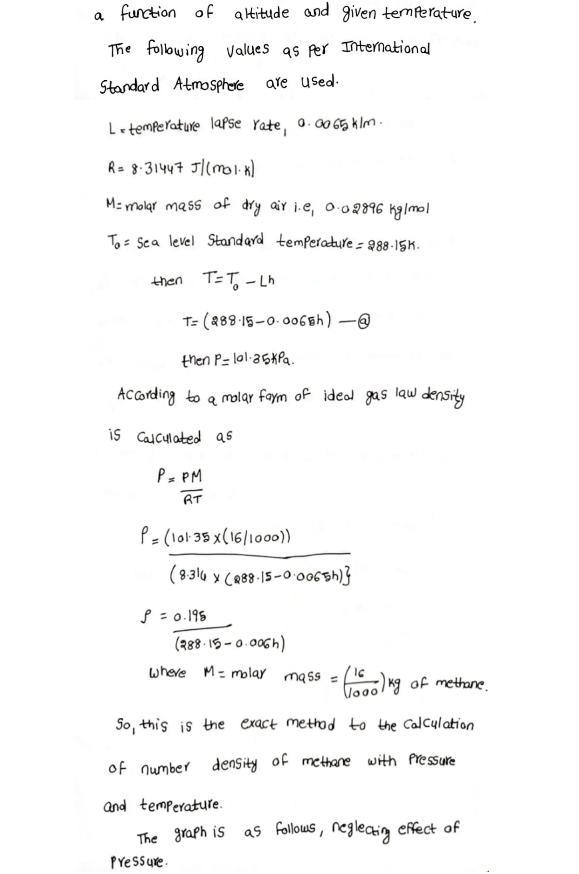 a function of altitude and given temperature.
The following values as per International
Standard Atmosphere are used.
L = temperature lapse rate, 0.0065 k/m.
R = 8.31447 J/(mol.K)
M = molar mass of dry air i.e, 0.02896 kg/mol
T₀ = Sea level Standard temperature = 288.15K.
then T = T₀ - Lh
T = (288.15-0.0065h) —ⓐ
then P = 101.35kPa.
According to a molar form of ideal gas law density
is calculated as
ρ = PM
RT
ρ = (101.35 x (16/1000))
(8.314 x (288.15-0.0065h)}
ρ = 0.195
(288.15-0.006h)
where M = molar mass = (16/1000) kg of methane.
So, this is the exact method to the calculation
of number density of methane with pressure
and temperature.
The graph is as follows, neglecting effect of
pressure.